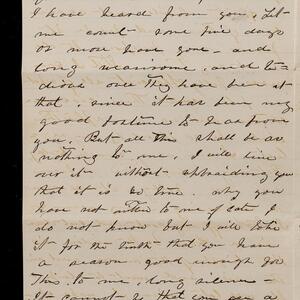 I have heard from you, Let
me count - some five days
or more have gone - and
long wearisome, and te-
dious ones they have been at
that, since it has been my
good fortune to hear from
you. But all this shall be as
nothing to me, I will live
over it without upbraiding you
that it is so true. why you
have not written to me of late I
do not know but I will take
it for the truth that you have
a reason good enough for
this, to me, long silence -
It cannot be that you are a